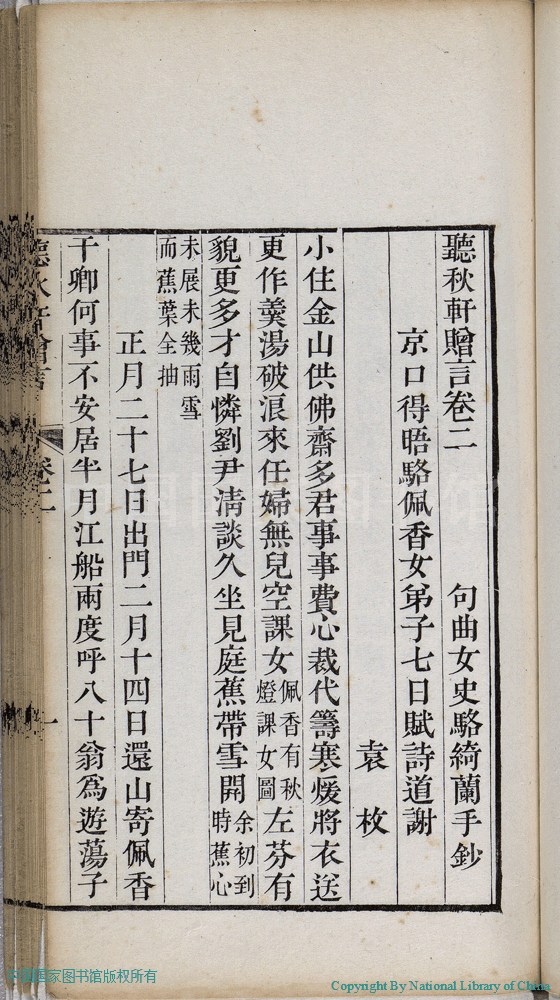 聽秋軒贈言卷二　句曲女史駱綺蘭手鈔
京口得晤駱佩香女弟子七日賦詩道謝
袁枚
小住金山供佛齋多君事事費心裁代籌寒煖將衣送
更作羹湯破浪來任婦無兒空課女佩香有秋燈課女圖左芬有
貌更多才自憐劉尹淸談久坐見庭蕉帶雪開余初到時蕉心
未展未幾雨雪而蕉葉全抽
正月二十七日出門二月十四日還山寄佩香
干卿何事不安居半月江船兩度呼八十翁爲遊蕩子
聽秋軒贈言　卷二　一
国家图书馆版权所有
Copyright By National Library of China